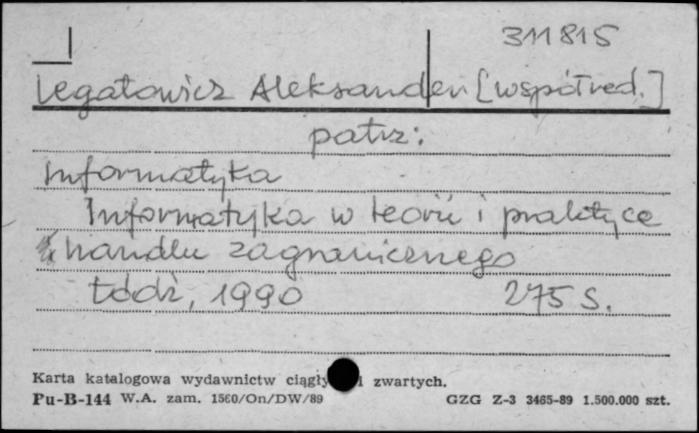 311815
Legatowicz Aleksander [współred.]
patrz:
Informatyka
Informatyka w teorii i praktyce
handlu zagranicznego
Łódź, 1990 275 s.
Karta katalogowa wydawnictw ciągły i zwartych.
Pu-B-144 W.A. zam. 1560/On/DW/89 GZG Z-3 3465-89 1.500.000 szt.